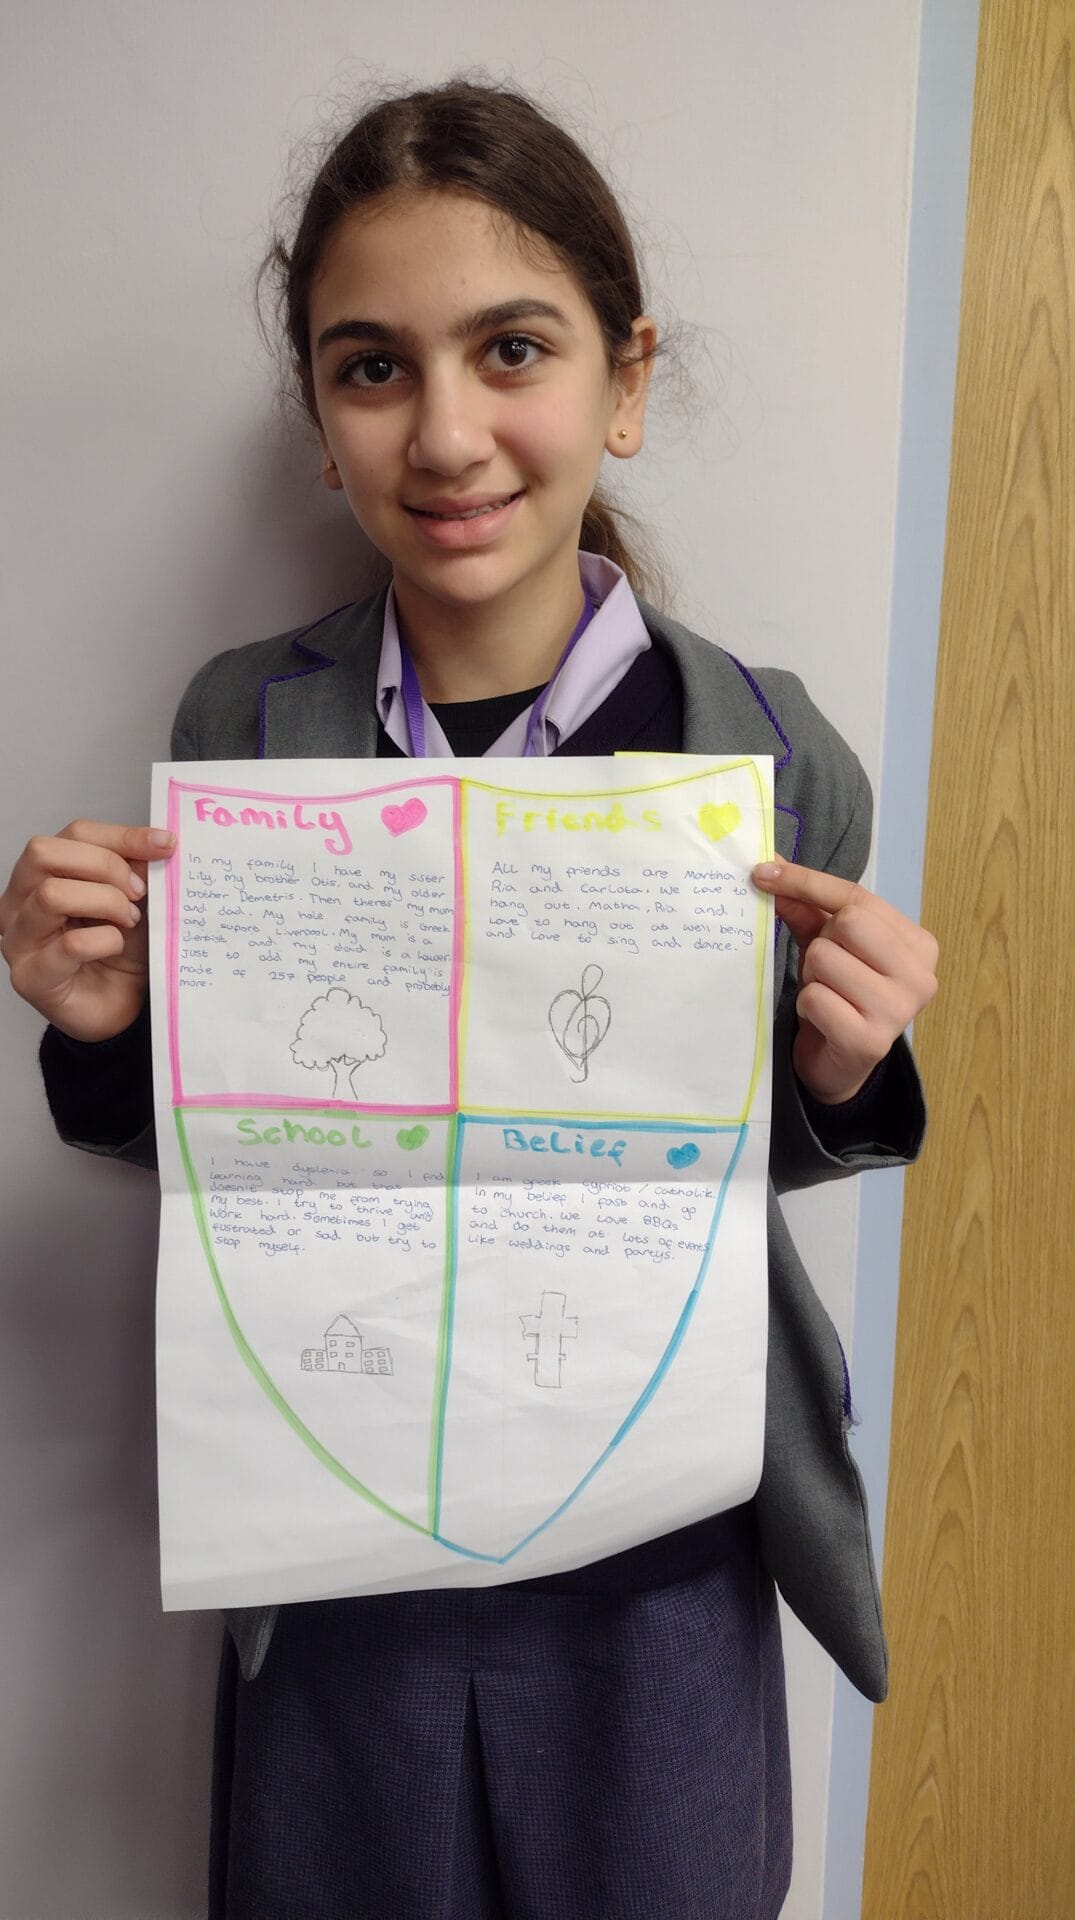 Family
In my family I have my sister
Lily, my brother Otis, and my older
brother Demetris. Then theres my mum
and dad. My hole family is Greek
and suport Liverpool. My mum is a
dentist and my dad is a lawer.
just to add my entire family is
made of 257 people and probebly
more.
Friends
All my friends are Martha,
Ria and Carlota. We love to
hang out. Matha, Ria and I
love to hang out at well being
and love to sing and dance.
School
I have dyslexia so I find
learning hard but that
doesn't stop me from trying
my best. I try to thrive and
work hard. Sometimes I get
fustrated or sad but try to
stop myself.
Belief
I am greek cypriot / catholik.
In my belief I fast and go
to church. We love BBQs
and do them at lots of events
like weddings and partys.